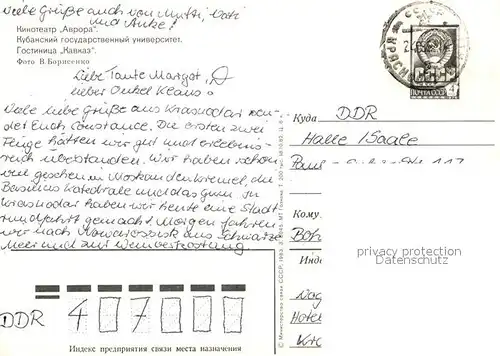 Viele Grüße auch von Mutti, Vati
und Anke!
Кинотеатр "Аврора".
Кубанский государственный университет.
Гостиница „Кавказ".
Фото В. Борисенко
Liebe Tante Margot,
lieber Onkel Klaus!
Viele liebe Grüße aus Krasnodar sen-
det Euch Constance. Die ersten zwei
Flüge hätten wir gut und erlebnis-
reich überstanden. Wir haben schon
viel gesehen in Moskau den Kreml, die
Basilius Katedrale und das Gum, in
Krasnodar haben wir heute eine Stadt
rundfahrt gemacht. Morgen fahren
wir nach Noworossisk ans Schwarze
Meer und zur Weinverkostung
ПОЧТА СССР
4
Куда DDR
Halle /Saale
Кому
Инде
privacy protection
Datenschutz
Hote
DDR 4070
Индекс предприятия связи места назначения
© Министерство связи СССР, 1982